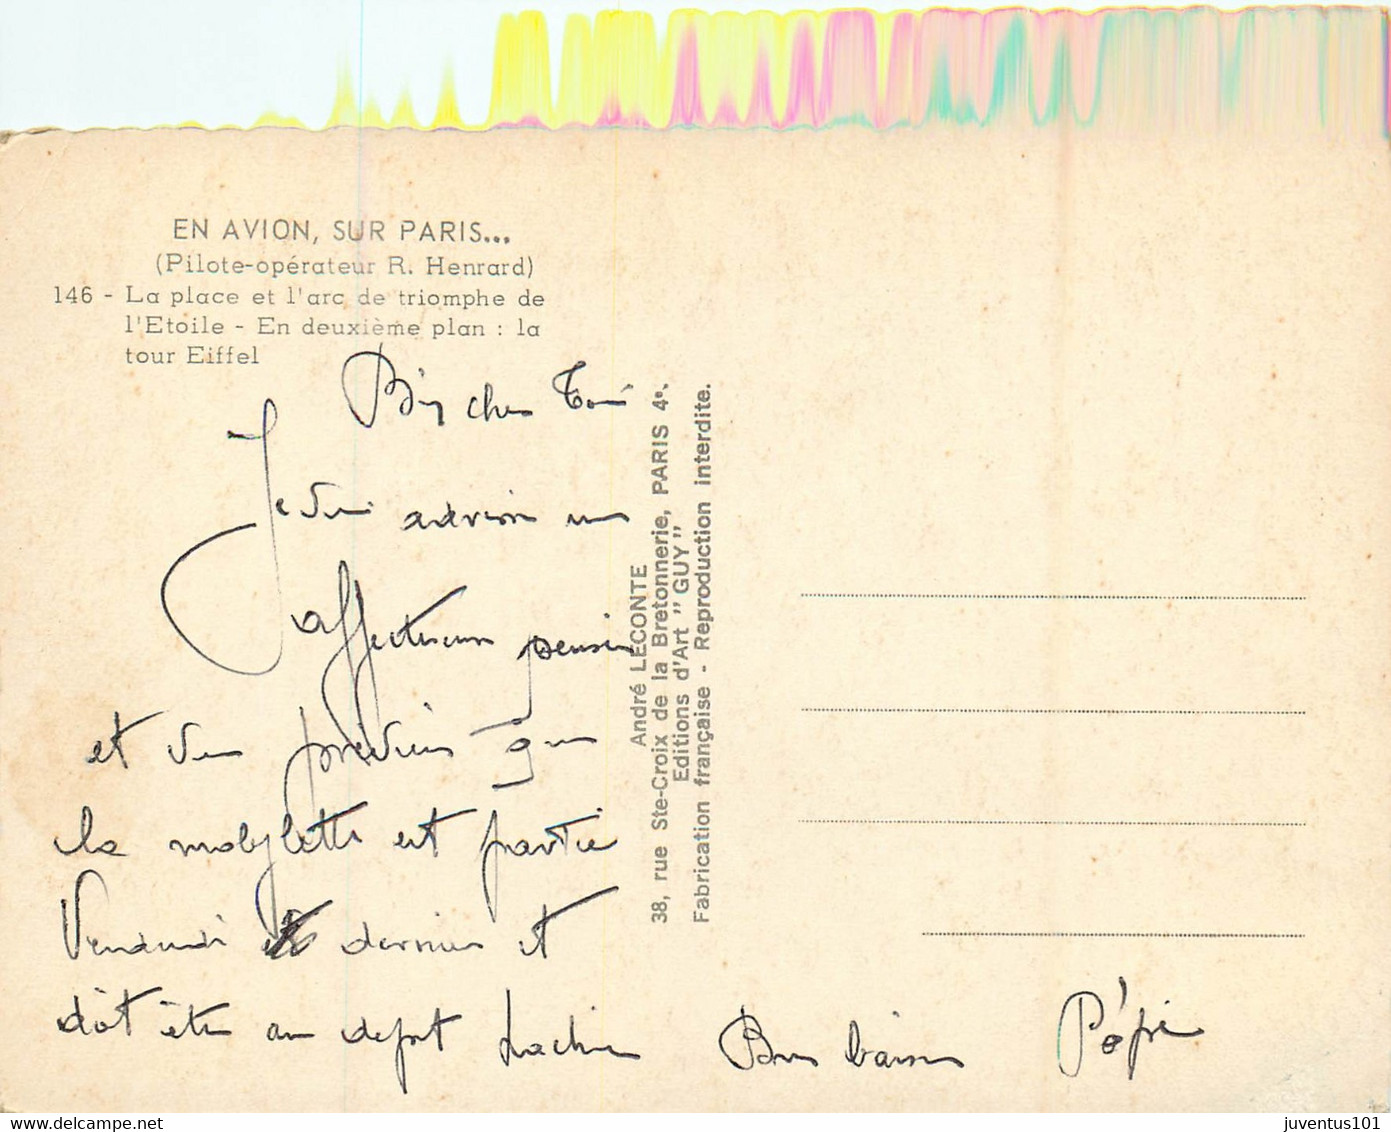 EN AVION, SUR PARIS...
(Pilote-opérateur R. Henrard)
146 - La place et l'arc de triomphe de
l'Etoile - En deuxième plan : la
tour Eiffel
cher
Je
affectueuse pensée
et préviens que
la mobylette est partie
Vendredi dernier et
doit être au depot
Bons baisers
Pépé
André LECONTE
38, rue Ste-Croix de la Bretonnerie, PARIS 4e.
Editions d'Art "GUY"
Fabrication française - Reproduction interdite.
delcampe.net
juventus101